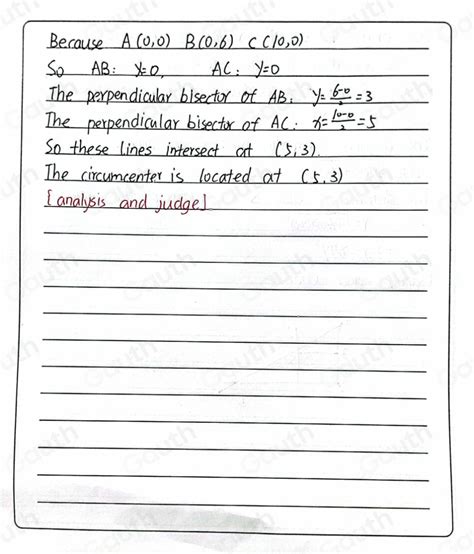 Because A(0,0) B(0,6) C(10,0)
So AB: x=0, AC: y=0
The perpendicular bisector of AB: y=6-0/2=3
The perpendicular bisector of AC: x=10-0/2=5
So these lines intersect at (5,3).
The circumcenter is located at (5,3)
[analysis and judge]